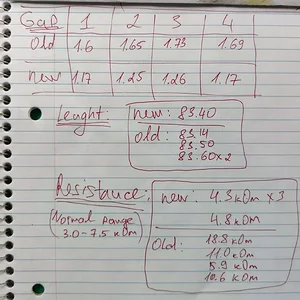 Gap 1 2 3 4
old 1.6 1.65 1.73 1.69
new 1.17 1.25 1.26 1.17
Lenght: new: 83.40
old: 83.14
83.50
83.60x2
Resistance: new: 4.3 kOm x3
4.8 kOm
(Normal range
3.0-7.5 kOm)
Old: 18.8 kOm
11.0 kOm
5.9 kOm
10.6 kOm